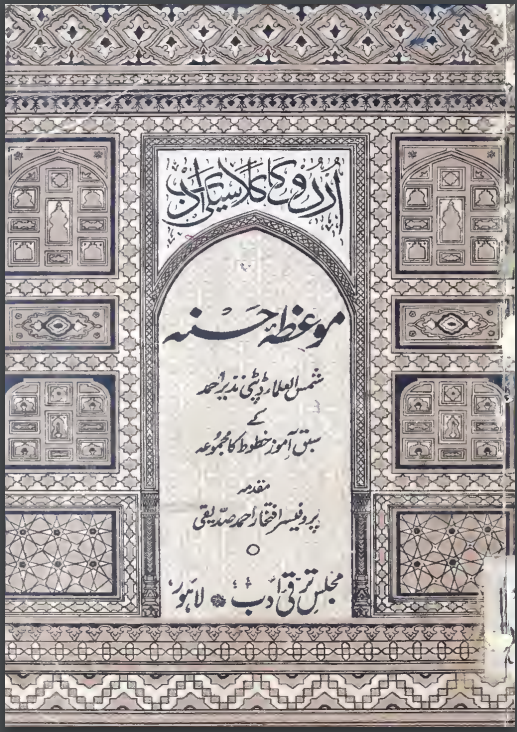 اردو کا کلاسیکی ادب
موعظۂ حسنہ
شمس العلماء ڈپٹی نذیر احمد
کے
سبق آموز خطوط کا مجموعہ
مقدمہ
پروفیسر افتخار احمد صدیقی
مجلس ترقی ادب لاہور